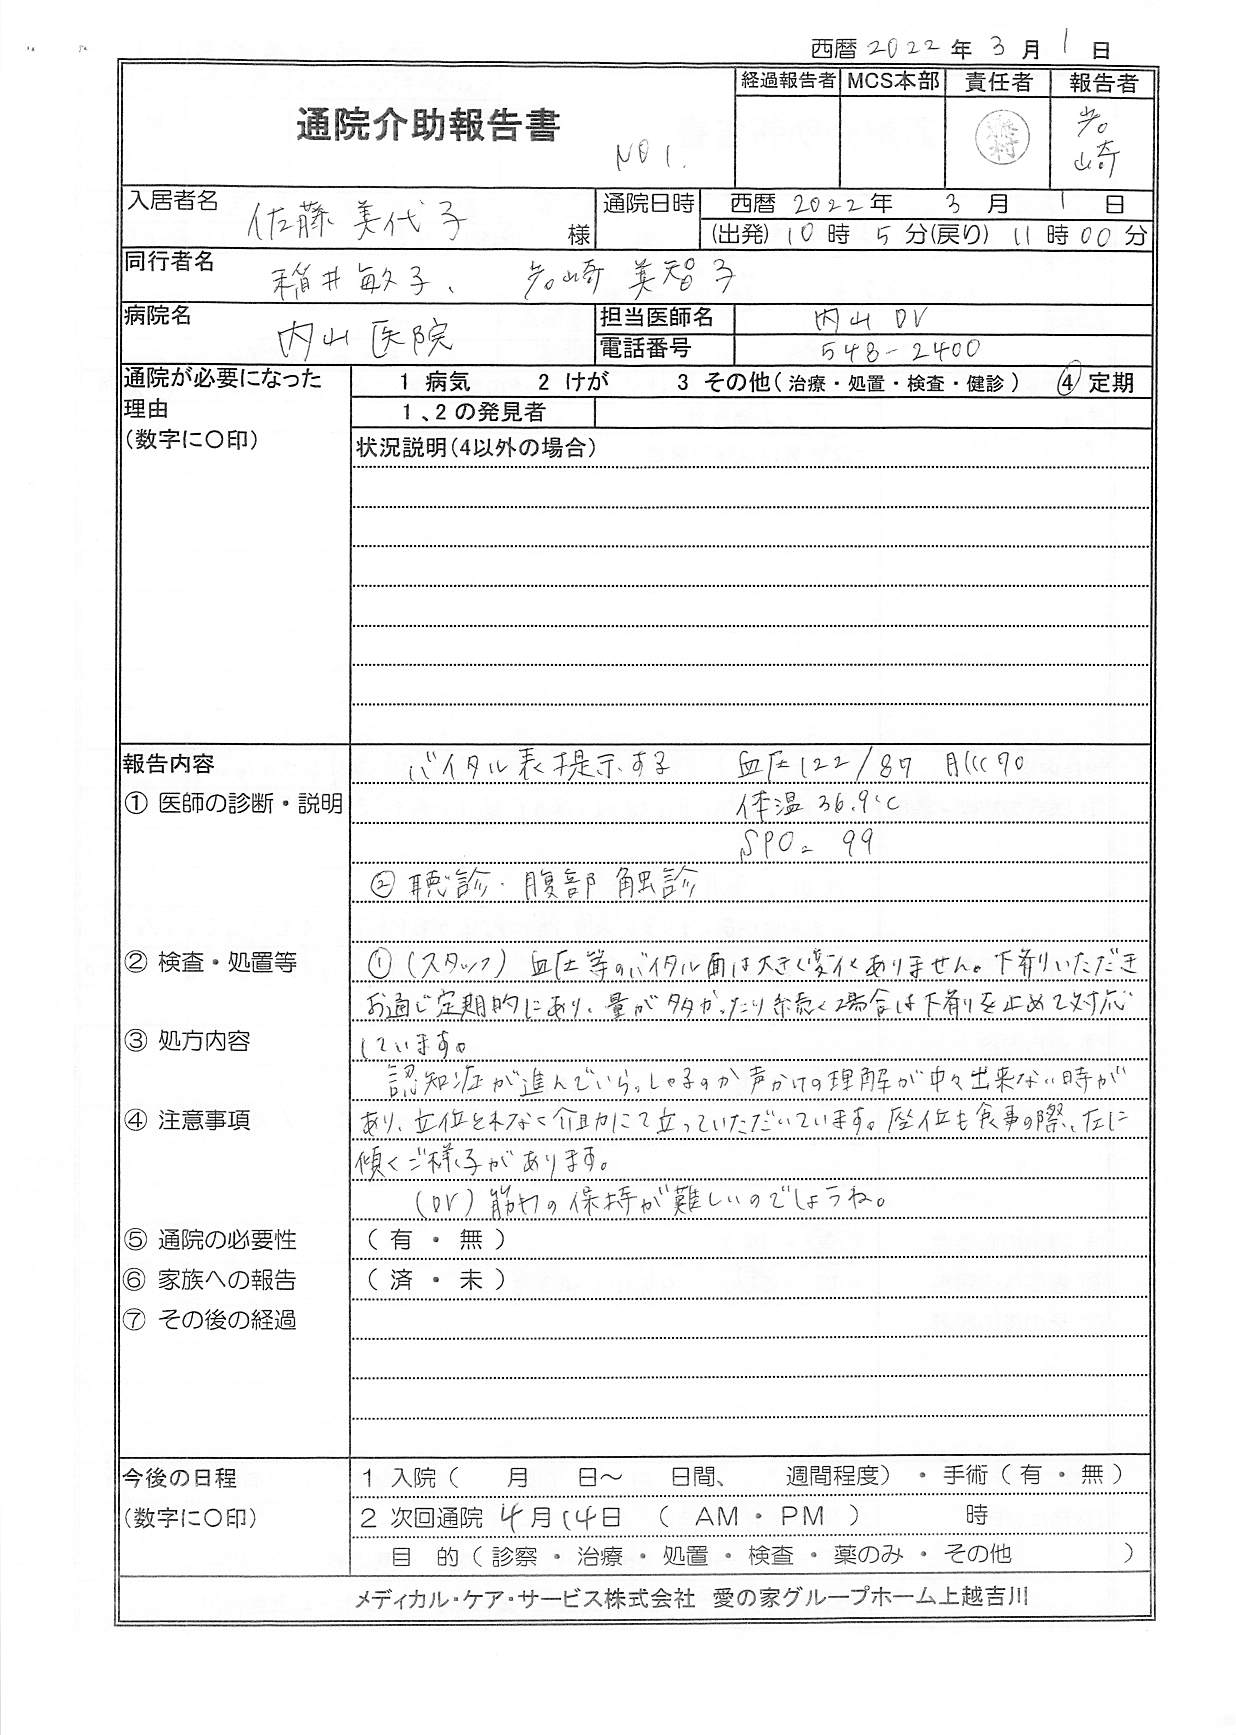 西暦 2022 年 3 月 1 日
通院介助報告書
NO 1.
経過報告者 MCS本部 責任者 報告者
岩崎
入居者名 佐藤 美代子 様
通院日時 西暦 2022 年 3 月 1 日
(出発) 10 時 5 分 (戻り) 11 時 00 分
同行者名 稲井敏子、 岩崎 美智子
病院名 内山 医院
担当医師名 内山 Dr
電話番号 548-2400
通院が必要になった
理由
(数字に〇印)
1 病気 2 けが 3 その他( 治療・処置・検査・健診 ) ④ 定期
1、2の発見者
状況説明(4以外の場合)
報告内容 バイタル表提示する 血圧122/87 脈90
① 医師の診断・説明 体温36.9℃
SPO₂ 99
② 聴診・腹部 触診
② 検査・処置等 ① (スタッフ) 血圧等のバイタル面は大きく変化ありません。下剤いただき
お通じ定期的にあり、量が多かったり続く場合は下剤を止めて対応
③ 処方内容 しています。
認知症が進んでいらっしゃるのか声かけの理解が中々出来ない時が
④ 注意事項 あり、立位とれなく介助にて立っていただいています。座位も食事の際、左に
傾くご様子があります。
(Dr) 筋力の保持が難しいのでしょうね。
⑤ 通院の必要性 ( 有 ・ 無 )
⑥ 家族への報告 ( 済 ・ 未 )
⑦ その後の経過
今後の日程 1 入院 ( 月 日～ 日間、 週間程度) ・ 手術 ( 有 ・ 無 )
(数字に〇印) 2 次回通院 4月14日 ( AM ・ PM ) 時
目 的 ( 診察 ・ 治療 ・ 処置 ・ 検査 ・ 薬のみ ・ その他 )
メディカル・ケア・サービス株式会社 愛の家グループホーム上越吉川